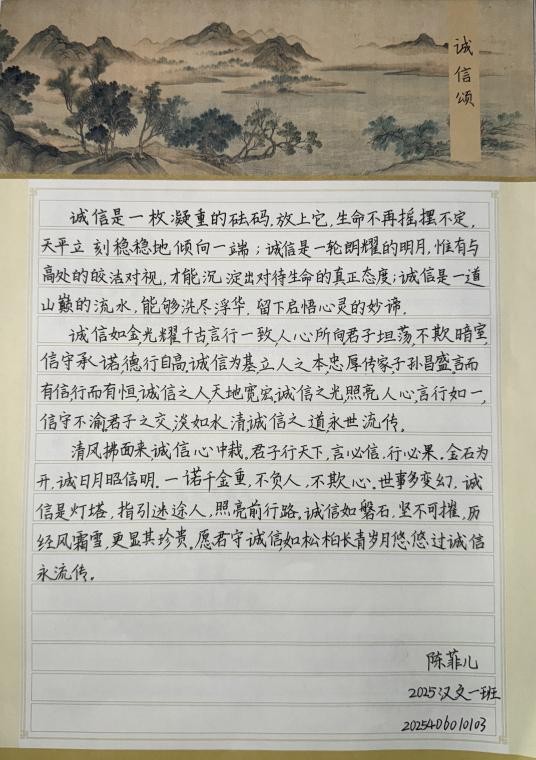 诚信颂
诚信是一枚凝重的砝码,放上它,生命不再摇摆不定,
天平立刻稳稳地倾向一端;诚信是一轮朗耀的明月,惟有与
高处的皎洁对视,才能沉淀出对待生命的真正态度;诚信是一道
山巅的流水,能够洗尽浮华,留下启悟心灵的妙谛.
诚信如金光耀千古言行一致,人心所向君子坦荡,不欺暗室,
信守承诺,德行自高,诚信为基立人之本,忠厚传家子孙昌盛言而
有信行而有恒,诚信之人天地宽宏,诚信之光,照亮人心,言行如一,
信守不渝,君子之交,淡如水,清诚信之道,永世流传。
清风拂面来,诚信心中栽。君子行天下,言必信,行必果。金石为
开,诚日月昭信明。一诺千金重,不负人,不欺心。世事多变幻,诚
信是灯塔,指引迷途人,照亮前行路。诚信如磐石,坚不可摧,历
经风霜雪,更显其珍贵。愿君守诚信,如松柏长青岁月悠悠过诚信
永流传。
陈菲儿
2025汉文一班
2025406010103